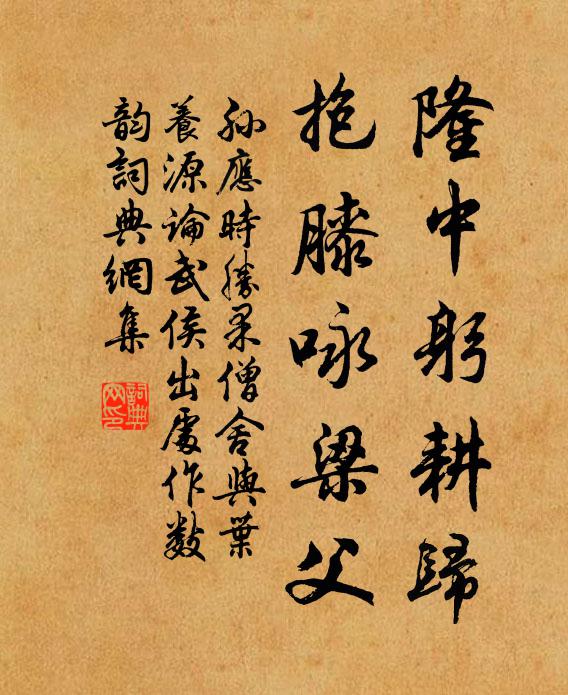 隆中躬耕歸
抱膝咏梁父
孫應時勝果僧舍與葉
養源論武侯出處作數
韵詞典網集
詞典網印